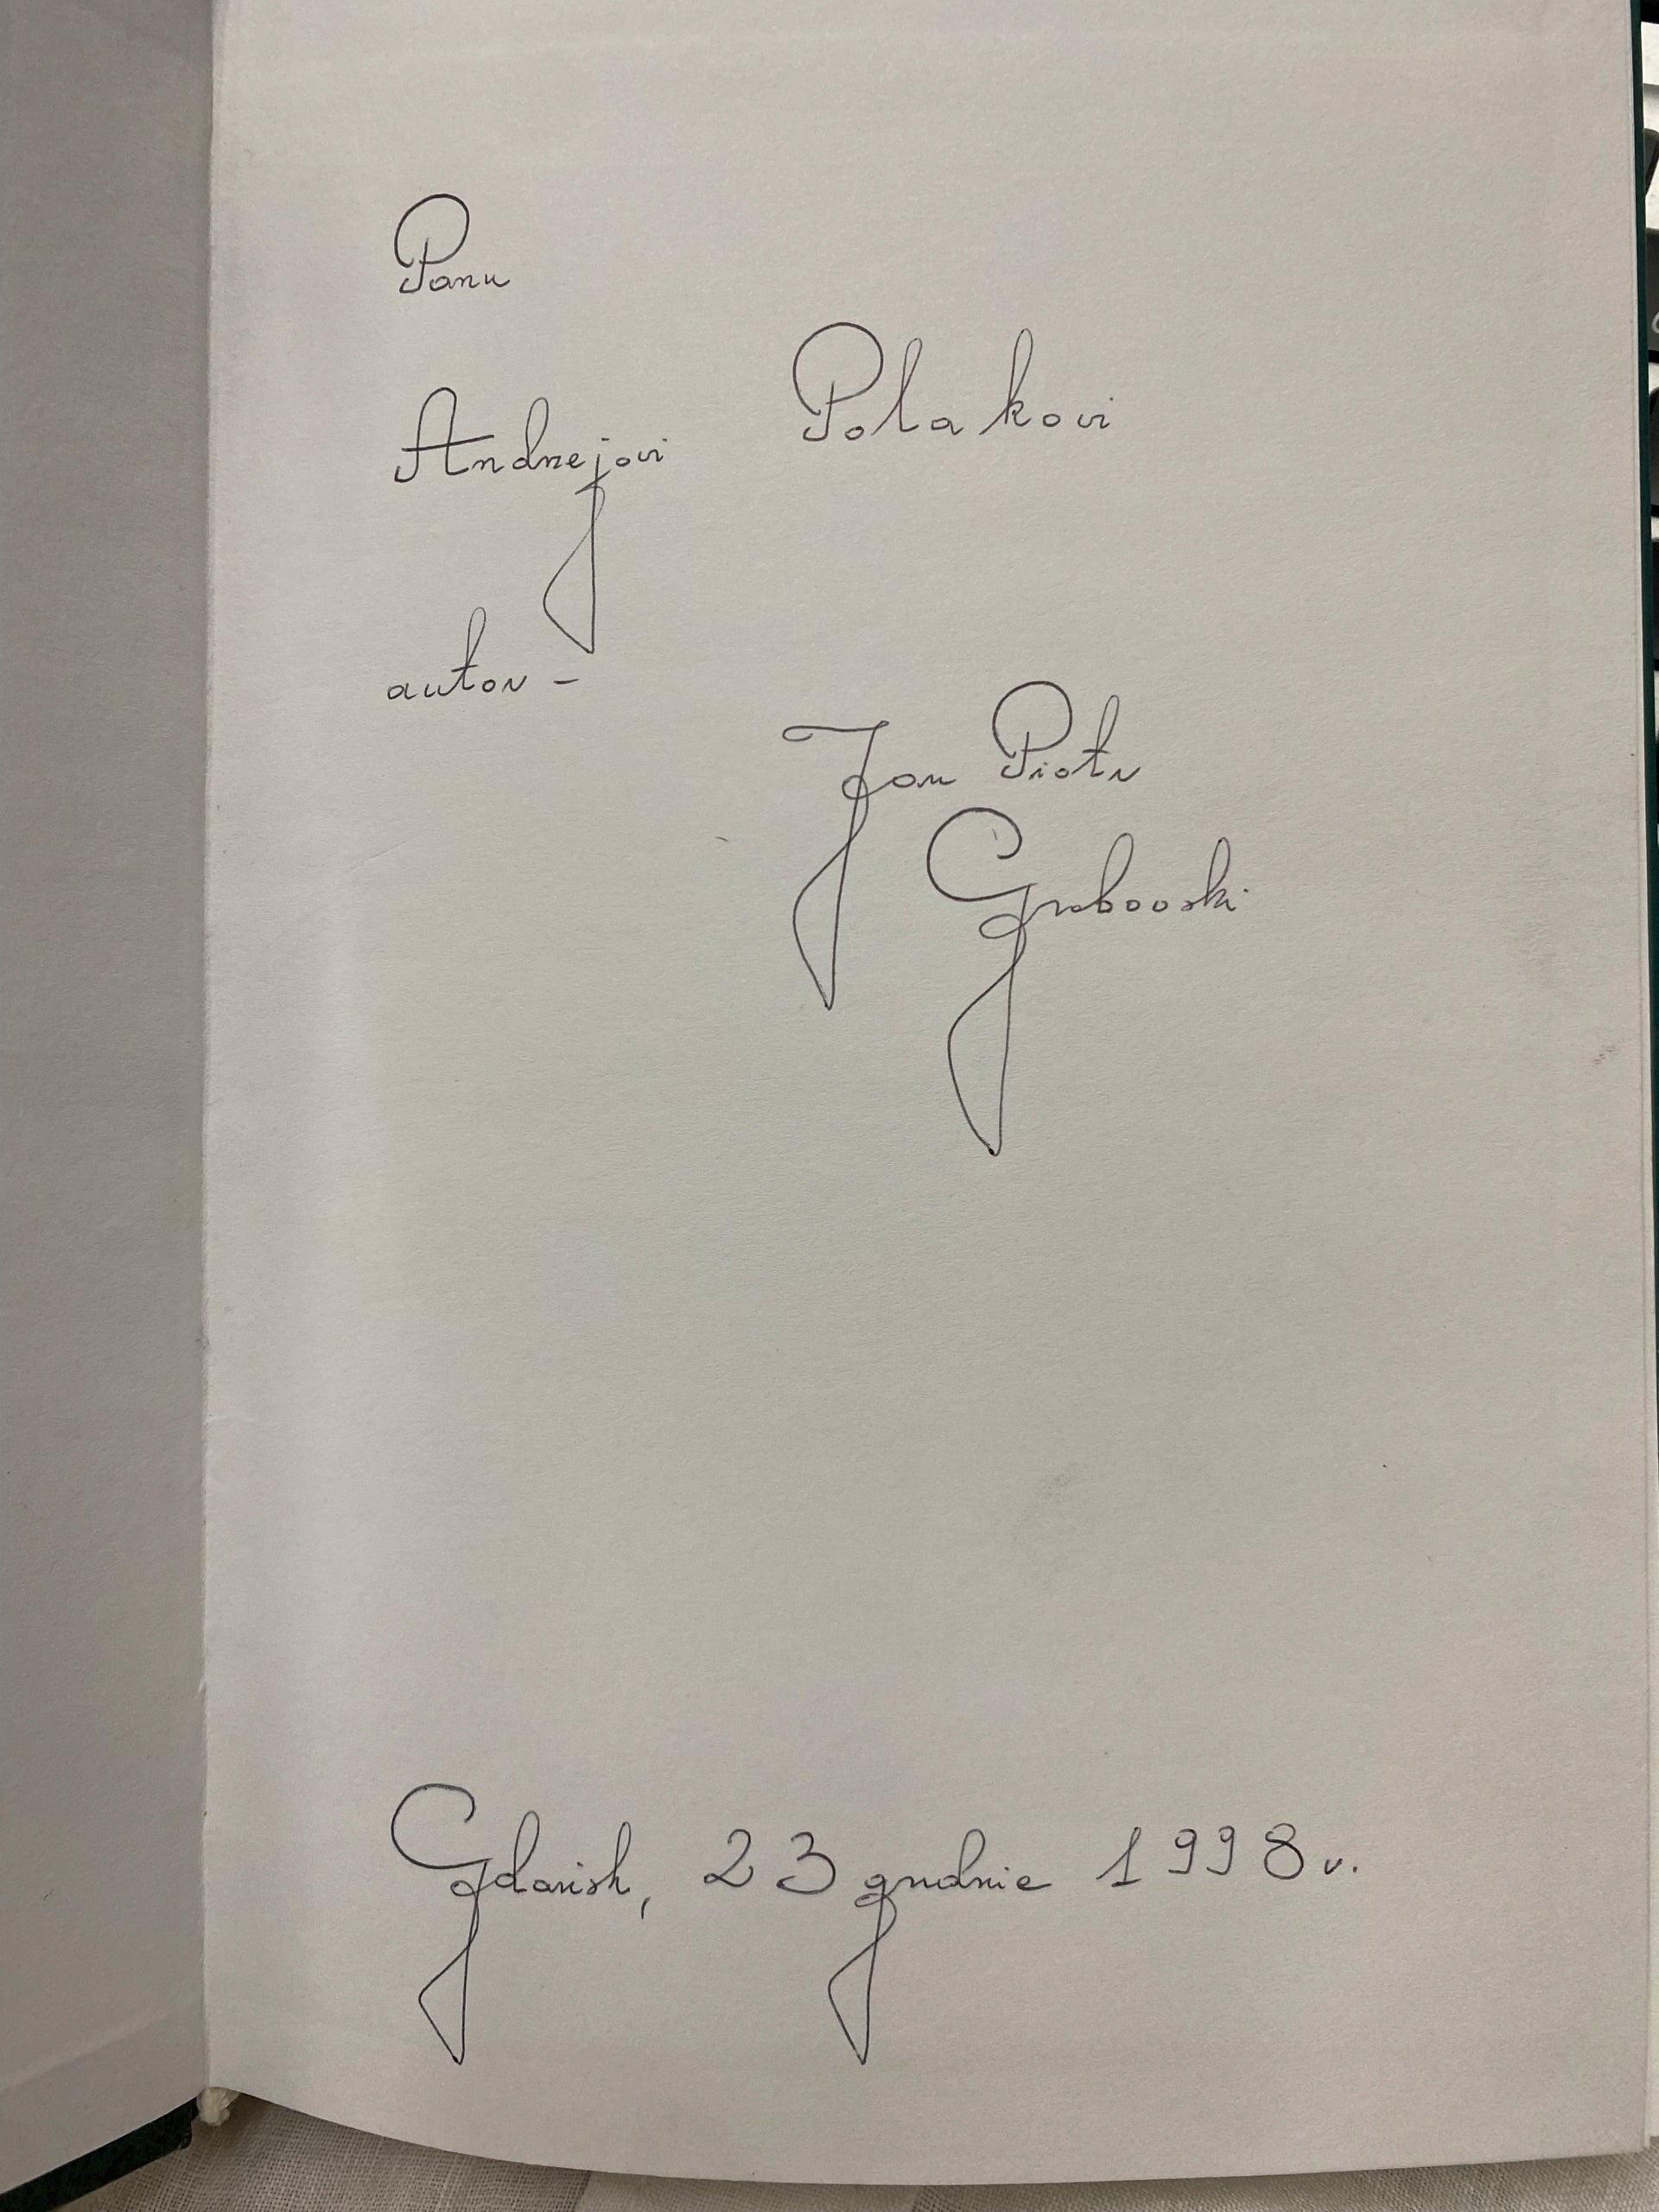 Panu
Andrzejowi Polakowi
autor -
Jan Piotr
Grabowski
Gdańsk, 23 grudnia 1998 r.